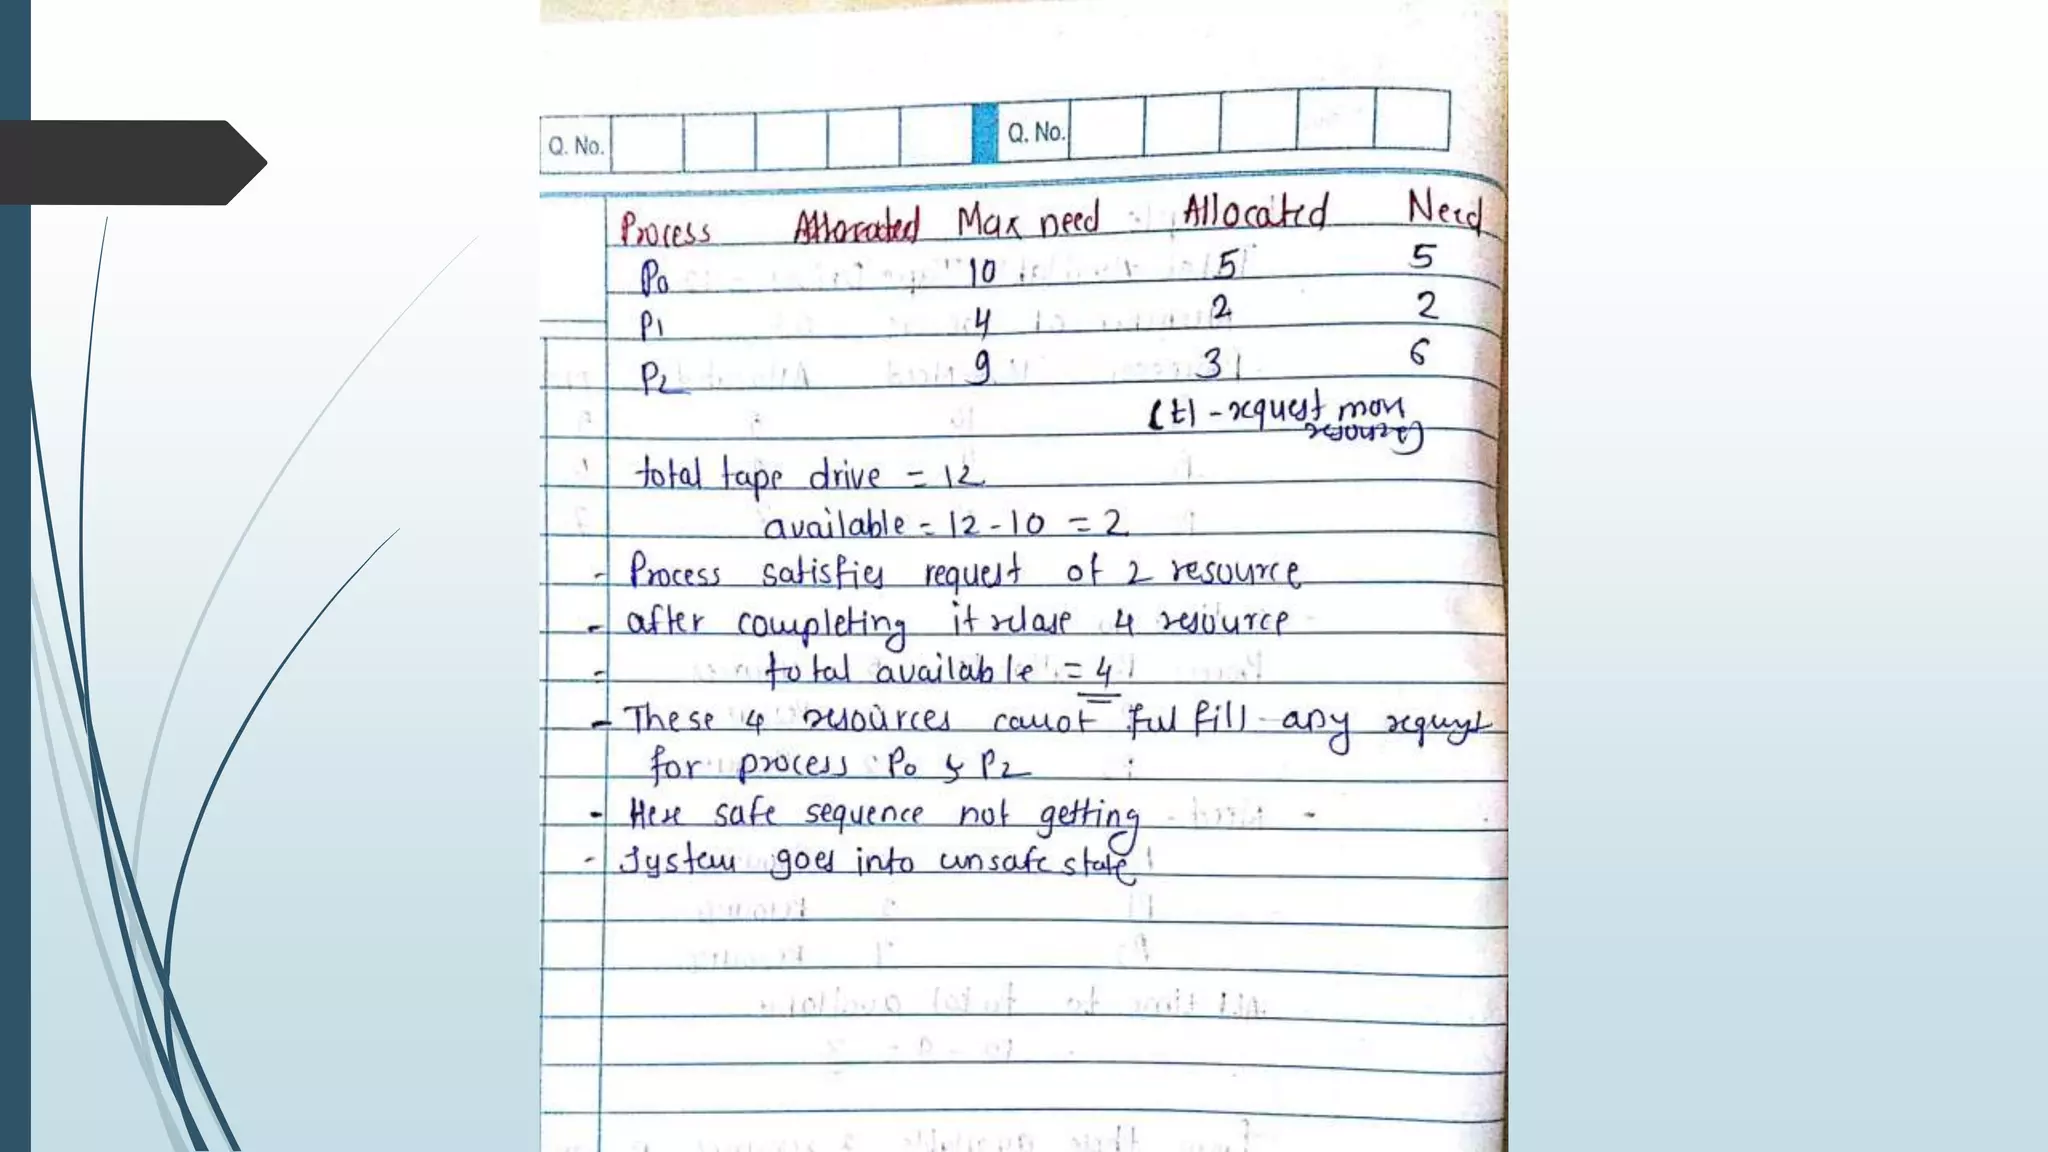 Q. No. Q. No.
Process Allocated Max need Allocated Need
P0 10 5 5
P1 4 2 2
P2 9 3 6
(t) - request more
resource
total tape drive = 12
available = 12 - 10 = 2
- Process satisfies request of 2 resource
- after completing it relase 4 resource
= total available = 4
- These 4 resources cannot fulfill any request
for process P0 & P2
- Here safe sequence not getting
- System goes into unsafe state